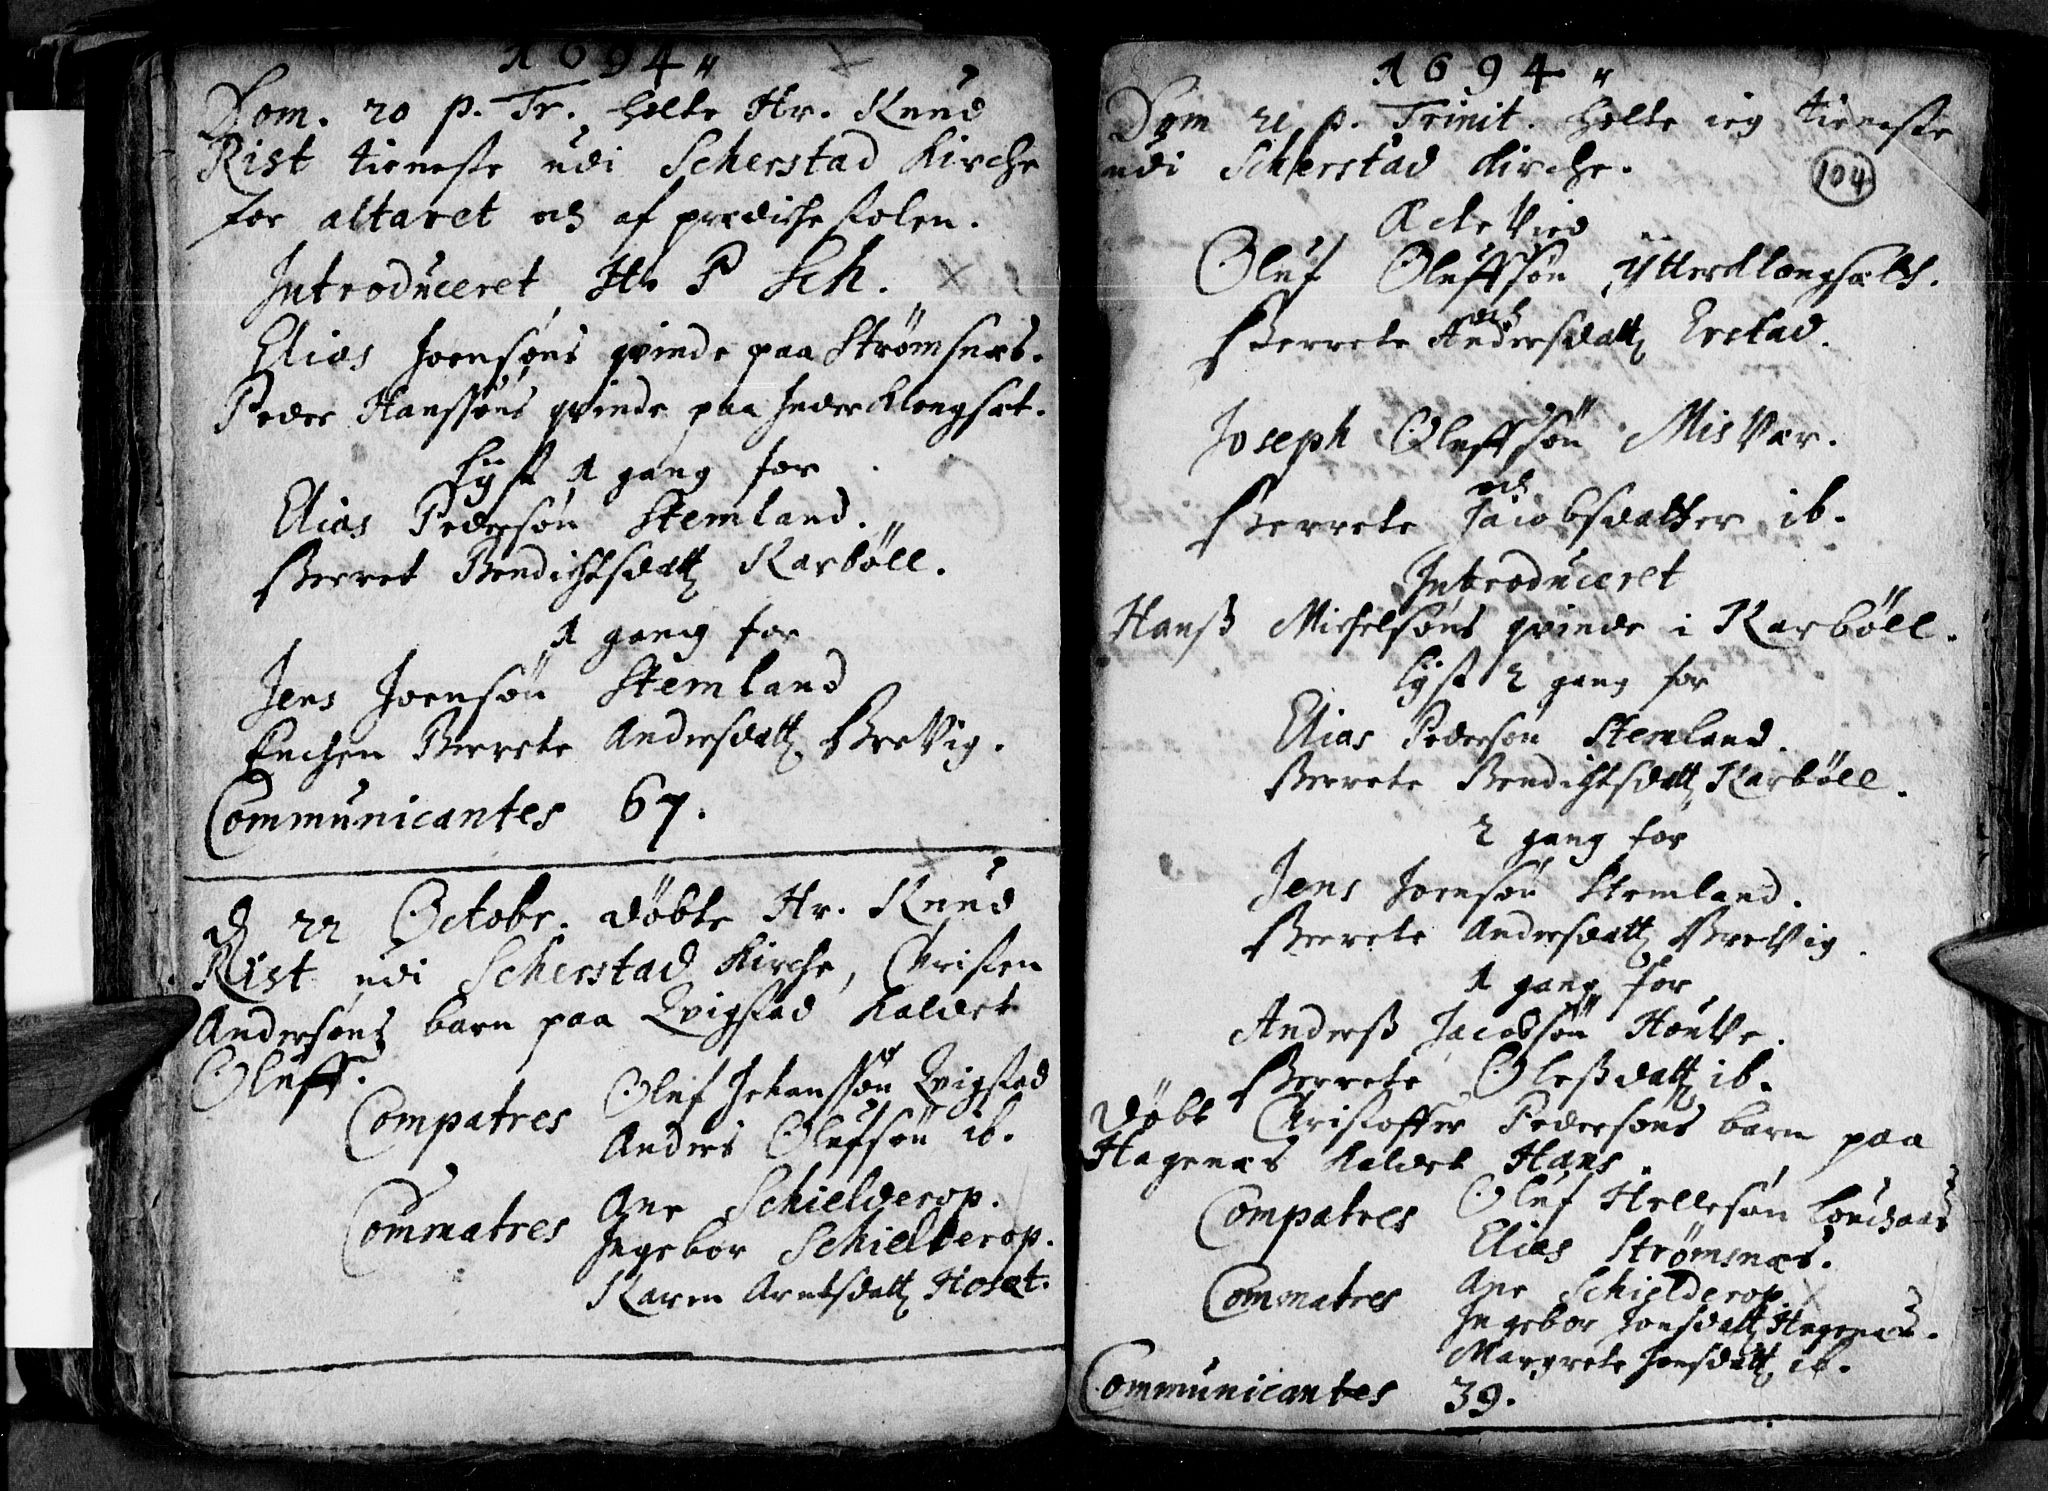 1694
Dom. 20 p. Tr. holte Hr. Knud
Rist tieneste udi Scherstad Kirche
for altaret och af prædichestolen.
Introduceret Hr P Sch.
Elias Joensøns qvinde paa Strømsnæs.
Peder Hanssøns qvinde paa Inderklongsæt.
Lÿst 1 gang for
Elias Pedersøn Stemland.
Berret Bendichtsdatt Karbøll.
1 gang for
Jens Joensøn Stemland
Enchen Berrete Andersdatt BreVig.
Communicantes 67.
d 22 Octobr. døbte Hr. Knud
Rist udi Scherstad Kirche, Christen
Andersøns barn paa Qvigstad kaldet
Oluff.
Compatres Oluf Johanssøn Qvigstad
Anders Olufsøn ib.
Commatres Ane Schielderop.
Ingebor Schielderop.
Karen Arntsdatt Hoset.
1694
104
Dom 21 p. Trinit. holte ieg tieneste
udi Scherstad Kirche.
Acte Vied
Oluf Oluffsøn Ytterklongsæth.
och
Berrete Andersdatt Erstad.
Joseph Oluffsøn MisVær.
och
Berrete Jacobsdatter ib.
Introduceret
Hanß Michelsøns qvinde i Karbøll.
Lÿst 2 gang for
Elias Pedersøn Stemland.
Berrete Bendichtsdatt Karbøll.
2 gang for
Jens Joensøn Stemland.
Berrete Andersdatt BreVig.
1 gang for
Anderß Jacobsøn HouVe.
Berrete Oleßdatt ib.
Døbt Christoffer Pedersøns barn paa
Hagenæs kaldet Hans.
Compatres Oluf Hellesøn
Elias Strømsnæs.
Commatres Ane Schielderop
Ingebor Jonsdatt Hagenæs.
Margrete Jonsdatt ib.
Communicantes 39.